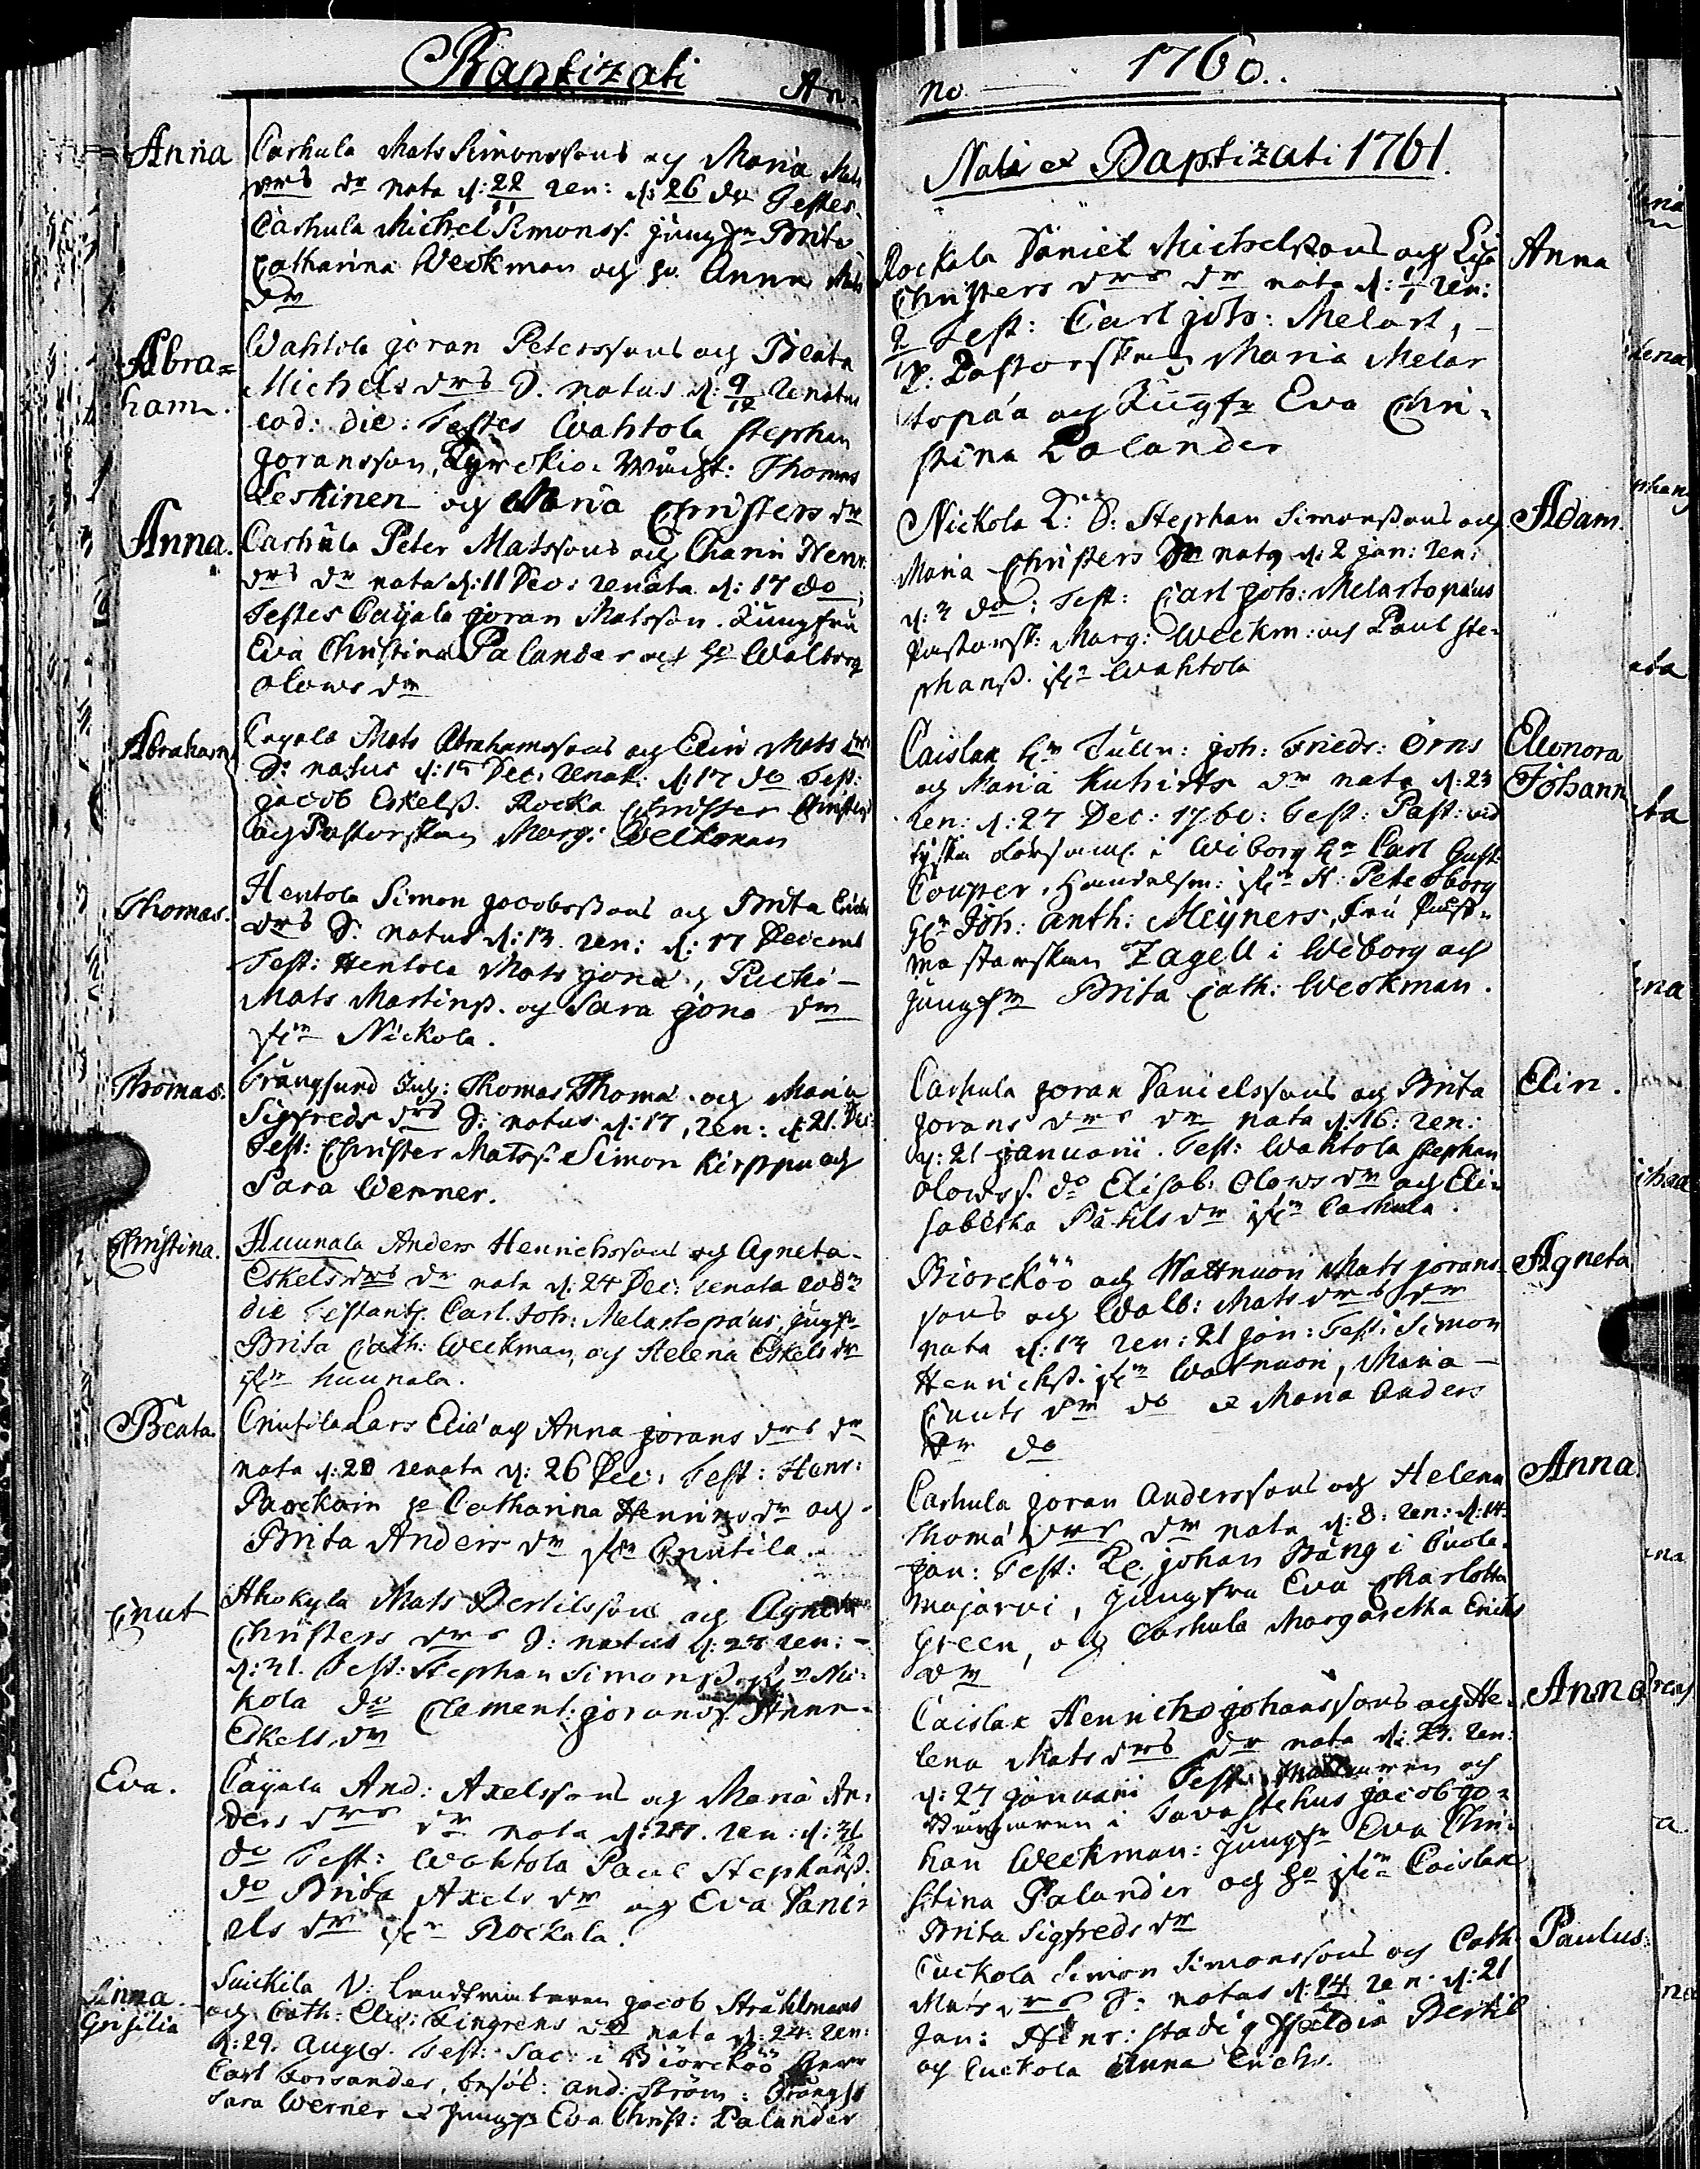 Baptizati An-
Anna
Carhula Mats Simonssons och Maria Mats
drs dr nata d: 22/11 ren: d: 26 do Testes
Carhula Michel Simonss. Jungfr Brita
Catharina Weckman och ho Anna Mats
dr
Abra=
ham.
Wahtola Joran Peterssons och Beata
Michels drs S. natus d: 9/12 renatus
eod: die: Testes Wahtola Stephan
Joransson, Thomas
Leskinen och Maria Christers dr
Anna.
Carhula Peter Matssons och Charin Henr:
drs dr nata d: 11 Dec: renata d: 17 do;
Testes Cayala Joran Matsson. Jungfru
Eva Christina Palander och ho Walborg
Olows dr
Abraham
Cayala Mats Abrahamssons och Elin Mats drs
S: natus d: 15 Dec: renat: d: 17 do Test:
Jacob Eskelss. Rocka Christer Christerss
och Pastorskan Marg: Weckman
Thomas.
Hentola Simon Jacobssons och Brita Erichs
drs S: natus d: 13. ren: d: 17 Decemb
Test: Hentola Mats Jona, Pucki-
Mats Martinss. och Sara Jona dr
ifrn Nickola.
Thomas.
Trångsund Inh: Thomas Thoma. och Maria
Sigfreds drs S: natus d: 17, ren: d: 21. Dec:
Test: Christer Matss. Simon Kirppu och
Sara Werner.
Christina.
Huunala Anders Henrichssons och Agneta
Eskels drs dr nata d: 24 Dec: renata eodm
die Testant. Carl Joh: Melartopæus, Jungfr
Brita Cath: Weckman, och Helena Eskels dr
ifrn Huunala.
Beata.
Cnutila Lars Eliæ och Anna Jorans drs dr
nata d: 20 renata d: 26 Dec: Test: Henr:
Pärckain ho Catharina Hennings dr och
Brita Anders dr ifrn Cnutila.
Cnut
Ahokyla Mats Bertilssons och Agneta
Christers drs S: natus d: 27 ren:-
d: 31. Test: Stephan Simonss. ifrn Nic-
kola do Clement: Joranss Anna
Eskels dr
Eva.
Cayala And: Axelssons och Maria An-
ders drs dr nata d: 27. ren: d: 31/12
do Test: Wahtola Paul Stephanss.
do Brita Axels dr och Eva Dani-
els dr ifrn Rockala.
Anna
Grisilia
Suickila V: Landtmätaren Jacob Stråhlmans
och Cath: Elis: Lingrens dr nata d: 24. ren:
d: 29. Aug. Test: Sac: i Biörcköö Herr
Carl Forsander, And: Ström:
Sara Werner et Jungfr Eva Christ: Palander
no 1760..
Nati et Baptizati 1761.
Rockala Daniel Michelssons och Lisa
Christers drs dr nata d: 1/1 ren:
2 Test: Carl Joh: Melart,-
Pastorskan Maria Melar
topæa och Jungfr Eva Chri-
stina Palander
Anna
Nickola L: S: Stephan Simonssons och
Maria Christers Dr nata d: 2 Jan: ren:
d: 3 do; Test: Carl Joh: Melartopæus
Pastorsk: Marg: Weckm: och Paul Ste-
phanss. ifrn Wahtola
Adam.
Caislax hr Tulln: Joh: Friedr: Örns
och Maria Kuhirts dr nata d: 23
ren: d: 27 Dec: 1760: Test: Past: wid
tyska församl. i Wiborg hr Carl Gust:
Couper, Handelsm: ifrn St: Petersborg
hr Joh: Anth: Meijners, Fru Post-
mästarskan Zagell i Wiborg och
Jungfr Brita Cath: Weckman.
Eleonora
Johann
Carhula Joran Danielssons och Brita
Jorans drs dr nata d: 16: ren:
d: 21 Januarii. Test: Wahtola Stephan
Olowss. do Elisab. Olows dr och Eli-
sabetha Påhls dr ifrn Carhula.
Elin.
Biorcköö och Wattnuori Mats Jorans-
sons och Walb: Mats drs dr
nata d: 13 ren: 21 Jan: Test: Simon
Henrichss. ifrn Watnuori, Maria-
Cnuts dr do et Maria Anders
dr do
Agneta
Carhula Joran Anderssons och Helena
Thomæ drs dr nata d: 8: ren: d: 14.
Jan: Test: Johan Bäng i Cuole-
majarvi, Jungfru Eva Charlotta
Green, och Carhula Margaretha Erichs
dr
Anna
Caislax Henrichs Johanssons och He-
lena Mats drs dr nata d: 23. ren:
d: 27 Januarii Test: och
i Tavastehus Jacob Jo-
han Weckman: Jungfr Eva Chri-
stina Palander och ho ifrn Caislax
Brita Sigfreds dr
Anna
Cuckola Simon Simonssons och Cath:
Mats drs S: natus d: 14 ren: d: 21
Jan: Henr: Bertil
och Cuckola Anna Erichs.
Paulus: